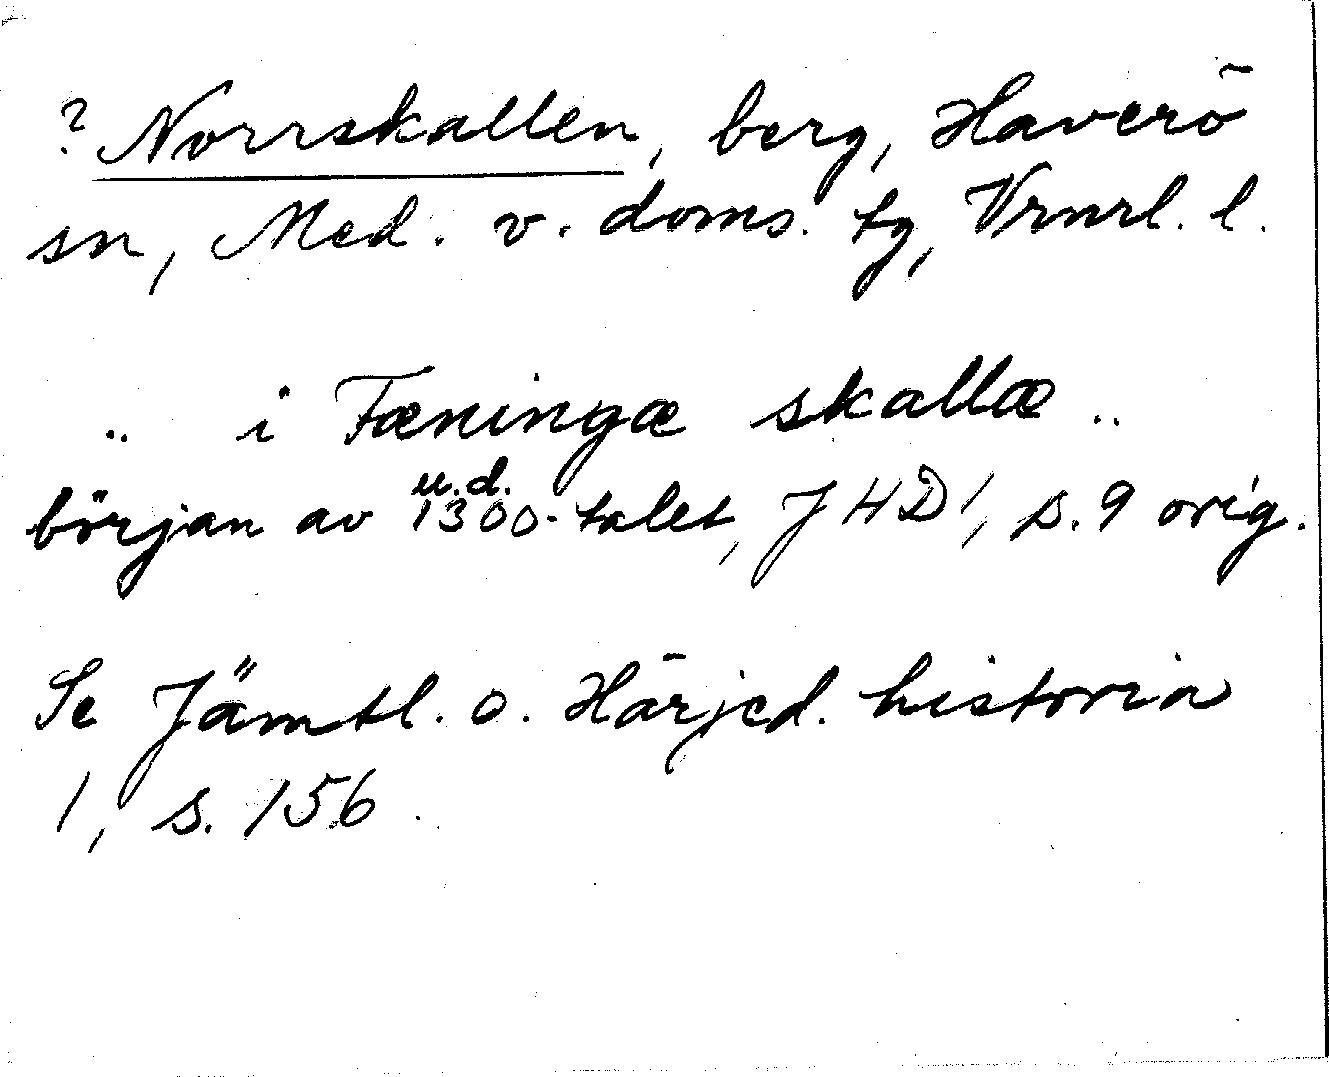 ? Norrskallen, berg, Haverö
sn, Med. v. doms. tg, Vrnrl. l.
.. i Fæningæ skallæ ..
u.d.
början av 1300-talet, JHD 1, s. 9 orig.
Se Jämtl. o. Härjed. historia
1, s. 156